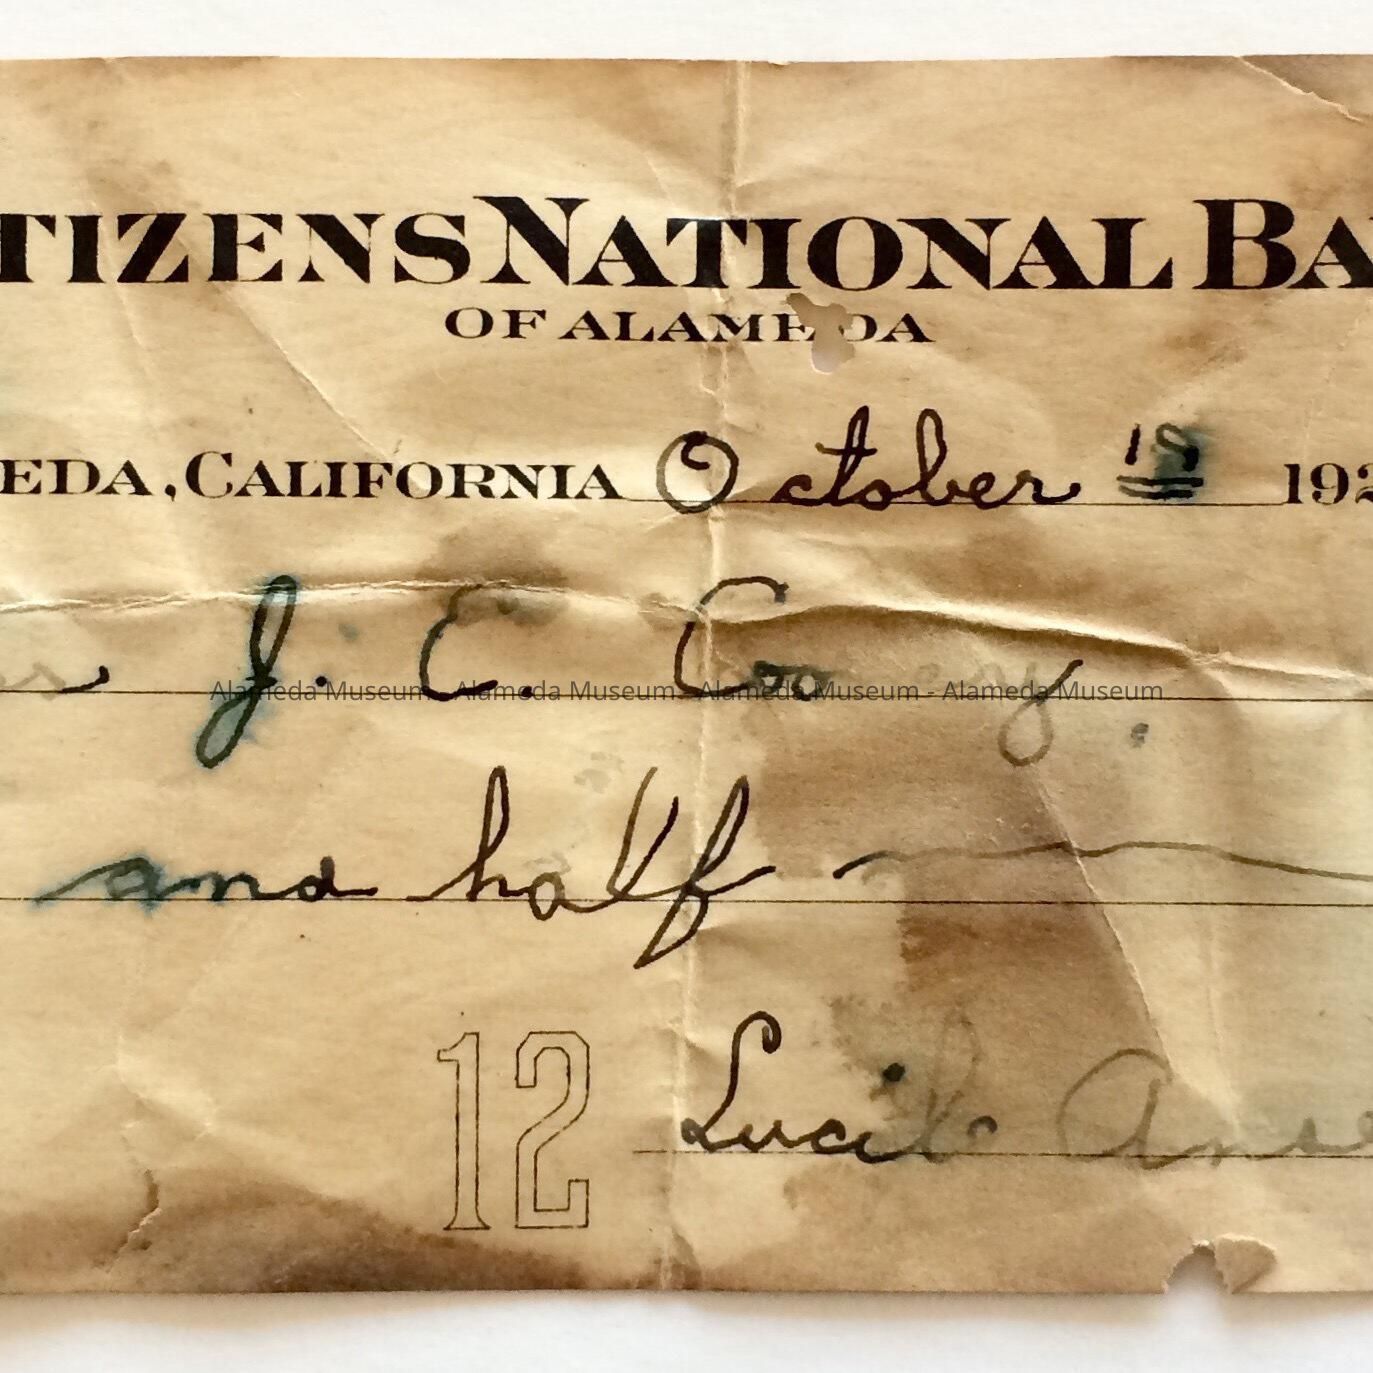 TIZENS NATIONAL BA
OF ALAMEDA
EDA, CALIFORNIA October 18 192
J. C.
Alameda Museum - Alameda Museum - Alameda Museum - Alameda Museum
and half
12
Lucile Anse